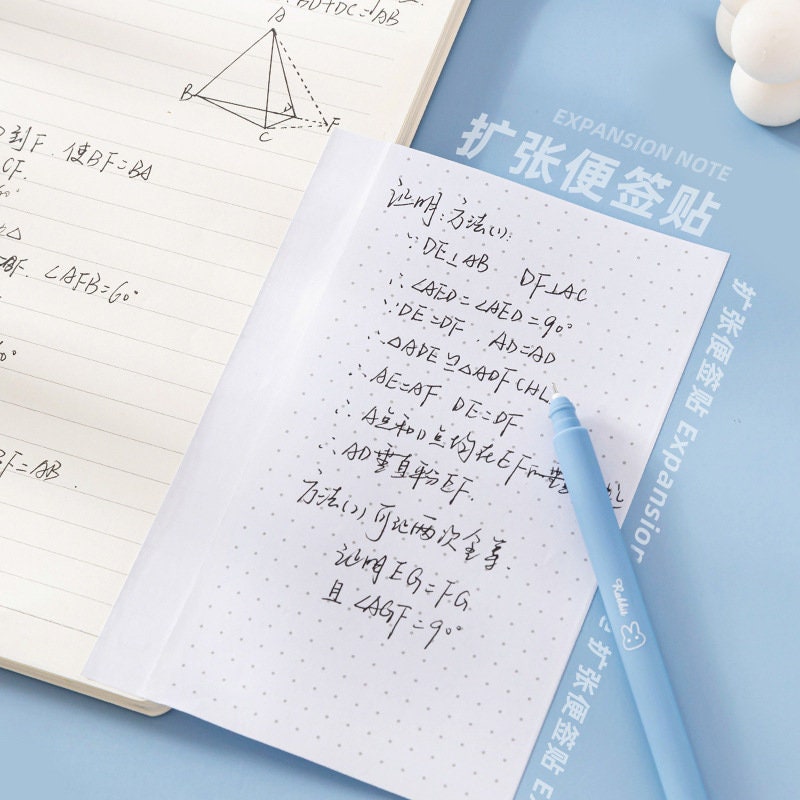 BD+DC=AB
A
B
D
C
F
到F. 使BF=BA
CF.
BF. ∠AFB=60°
BF=AB.
EXPANSION NOTE
扩张便签贴
证明:方法(1):
∵DE⊥AB DF⊥AC
∴∠AED=∠AED=90°
∵DE=DF. AD=AD
∴△ADE≌△ADF(HL
∴AE=AF DE=DF
∴A点和D点均在EF的垂
∴AD垂直平分EF.
方法(2)可证两次全等.
证明EG=FG
且∠AGF=90°
Rabbit
扩张便签贴 Expansion
扩张便签贴 E